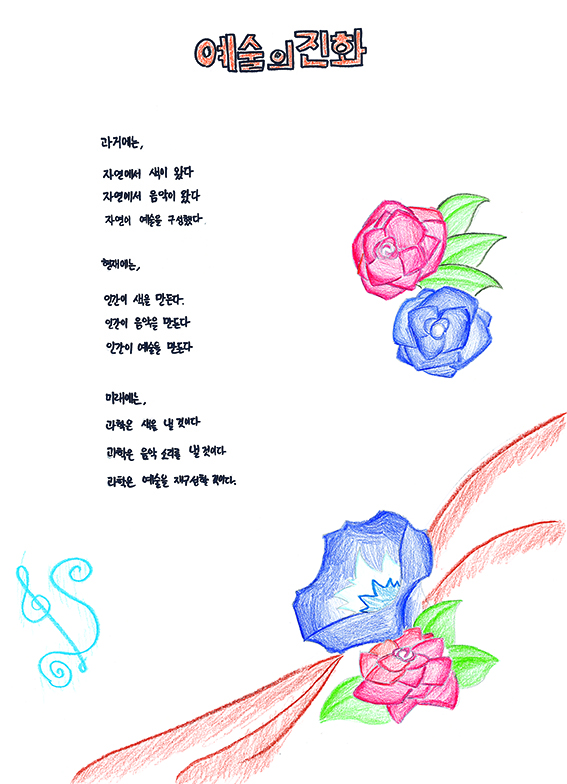 예술의진화
과거에는,
자연에서 색이 왔다
자연에서 음악이 왔다
자연이 예술을 구성했다.
현재에는,
인간이 색을 만든다.
인간이 음악을 만든다
인간이 예술을 만든다
미래에는,
과학은 색을 낼 것이다
과학은 음악 소리를 낼 것이다
과학은 예술을 재구성할 것이다.